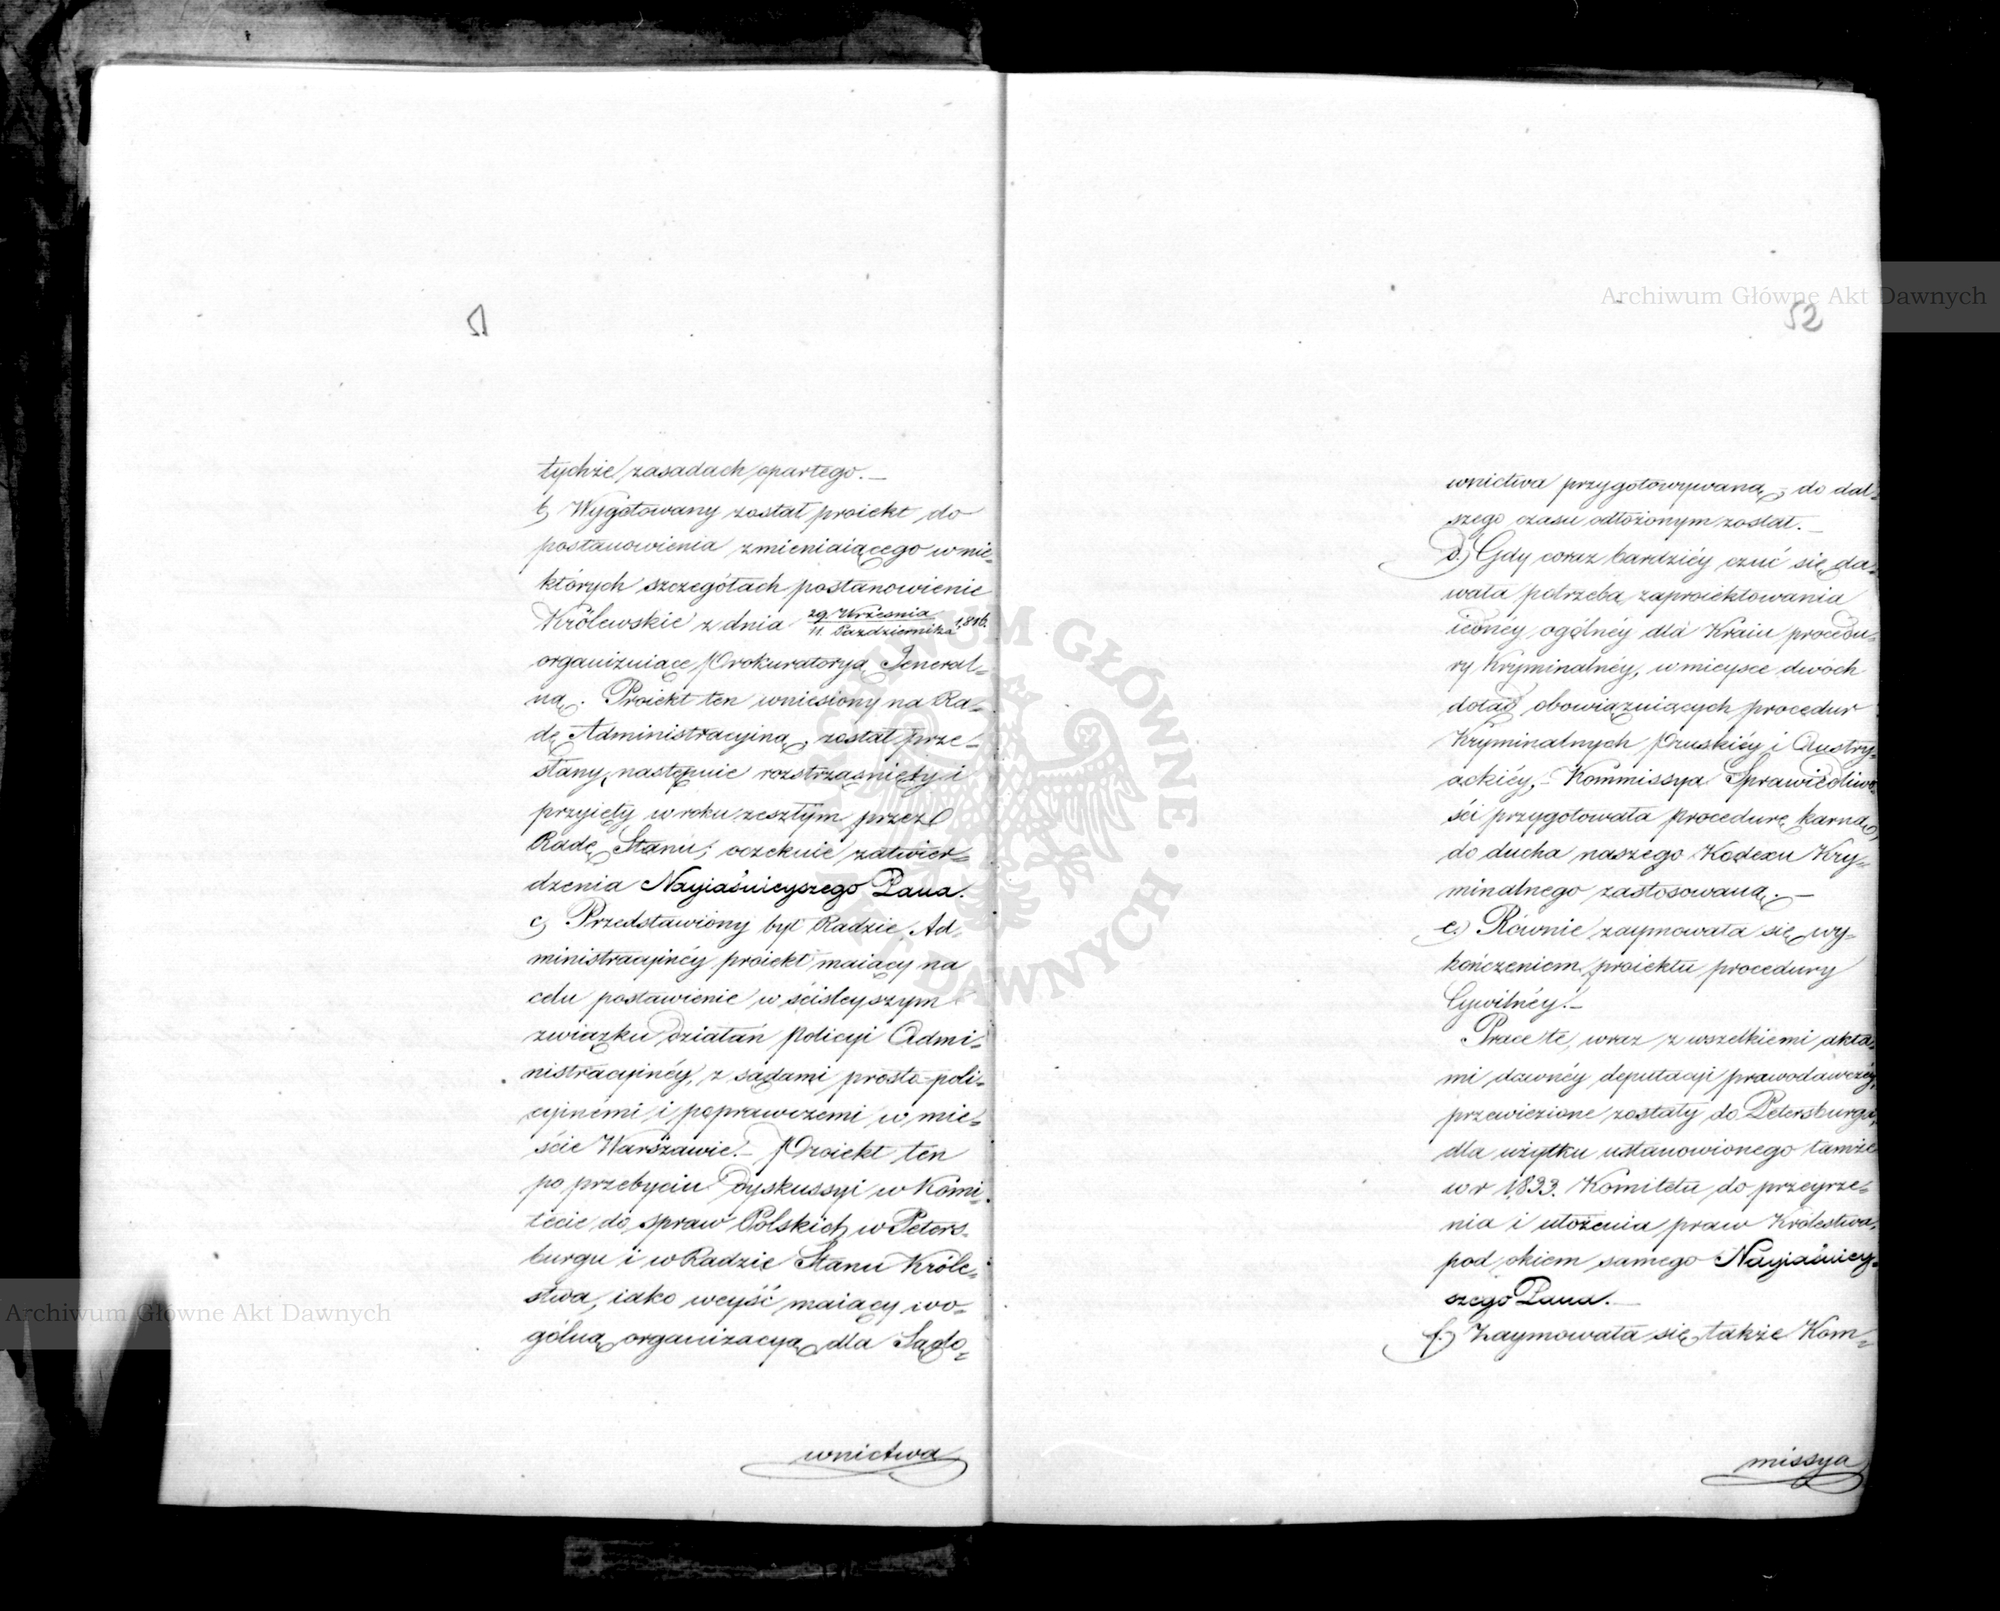 51
tychże zasadach opartego. —
b, Wygotowany został proiekt do
postanowienia zmieniaiącego w nie-
których szczegółach postanowienie
Królewskie z dnia 29. Września / 11. Października 1816.
organizuiące Prokuratoryą Jeneral-
ną. Proiekt ten wniesiony na Ra-
dę Administracyiną, został prze-
słany, następnie roztrząśnięty i
przyięty w roku zeszłym przez
Radę Stanu; oczekuie zatwier-
dzenia Nayiaśnieyszego Pana.
c, Przedstawiony był Radzie Ad-
ministracyinéy proiekt maiący na
celu postawienie w ściśleyszym
związku działań Policyi Admi-
nistracyinéy, z sądami prosto-poli-
cyinemi i poprawczemi w mie-
ście Warszawie. — Proiekt ten
po przebyciu dyskussyi w Komi-
tecie do spraw Polskich w Peters-
burgu i w Radzie Stanu Króle-
stwa, iako weyść maiący w o-
gólną organizacyą dla Sądo-
wnictwa
Archiwum Główne Akt Dawnych
52
wnictwa przygotowywaną, do dal-
szego czasu odłożonym został. —
d.) Gdy coraz bardziéy czuć się da-
wała potrzeba zaproiektowania
iednéy ogólnéy dla Kraiu procedu-
ry Kryminalnéy, w mieysce dwóch
dotąd obowiązuiących procedur
Kryminalnych Pruskiéy i Austry-
ackiéy, — Kommissya Sprawiedliwo-
ści przygotowała procedurę karną,
do ducha naszego Kodexu Kry-
minalnego zastosowaną. —
e.) Równie zaymowała się wy-
kończeniem proiektu procedury
Cywilnéy. —
Prace te, wraz z wszelkiemi akta-
mi dawnéy deputacyi prawodawczéy,
przewiezione zostały do Petersburga,
dla użytku ustanowionego tamże
w r 1833. Komitetu do przeyrze-
nia i ułożenia praw Królestwa,
pod okiem samego Nayiaśniey-
szego Pana. —
f.) Zaymowała się także Kom-
missya
Archiwum Główne Akt Dawnych
ARCHIWUM GŁÓWNE AKT DAWNYCH